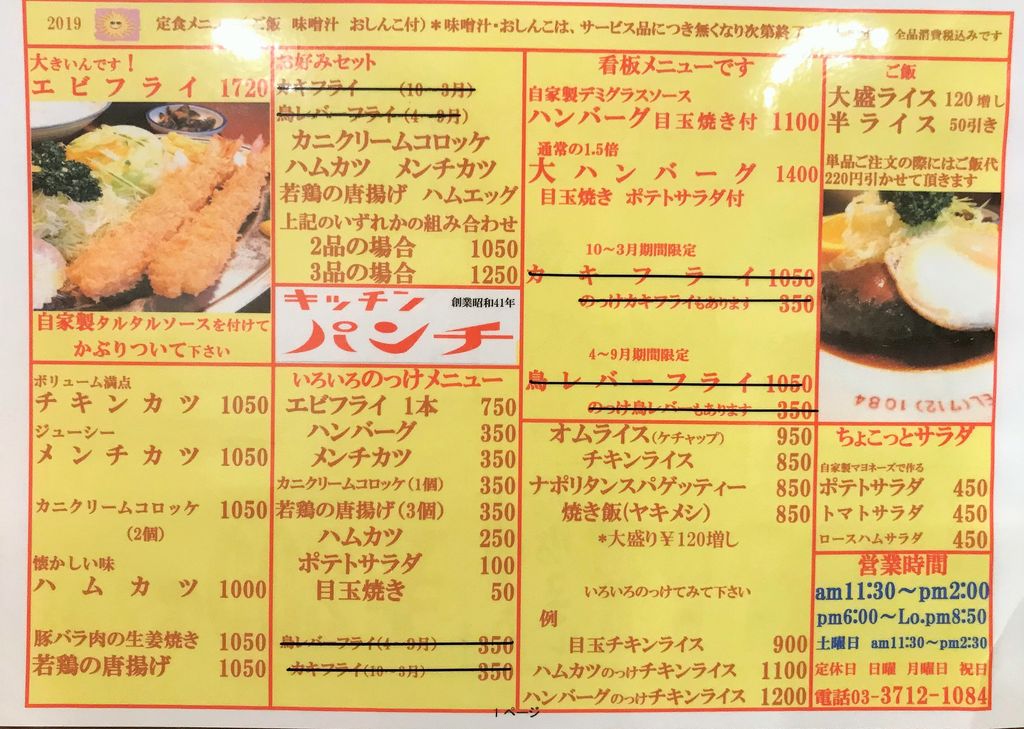 2019 定食メニュー ご飯 味噌汁 おしんこ付)*味噌汁・おしんこは、サービス品につき無くなり次第終了 全品消費税込みです
大きいんです!
エビフライ 1720
自家製タルタルソースを付けて
かぶりついて下さい
ボリューム満点
チキンカツ 1050
ジューシー
メンチカツ 1050
カニクリームコロッケ 1050
(2個)
懐かしい味
ハムカツ 1000
豚バラ肉の生姜焼き 1050
若鶏の唐揚げ 1050
お好みセット
カキフライ (10~3月)
鳥レバーフライ(4~9月)
カニクリームコロッケ
ハムカツ メンチカツ
若鶏の唐揚げ ハムエッグ
上記のいずれかの組み合わせ
2品の場合 1050
3品の場合 1250
キッチン 創業昭和41年
パンチ
いろいろのっけメニュー
エビフライ 1本 750
ハンバーグ 350
メンチカツ 350
カニクリームコロッケ(1個) 350
若鶏の唐揚げ(3個) 350
ハムカツ 250
ポテトサラダ 100
目玉焼き 50
鳥レバーフライ(4~9月) 350
カキフライ(10~3月) 350
看板メニューです
自家製デミグラスソース
ハンバーグ目玉焼き付 1100
通常の1.5倍
大ハンバーグ 1400
目玉焼き ポテトサラダ付
10~3月期間限定
カキフライ 1050
のっけカキフライもあります 350
4~9月期間限定
鳥レバーフライ 1050
のっけ鳥レバーもあります 350
オムライス(ケチャップ) 950
チキンライス 850
ナポリタンスパゲッティー 850
焼き飯(ヤキメシ) 850
*大盛り¥120増し
いろいろのっけてみて下さい
例
目玉チキンライス 900
ハムカツのっけチキンライス 1100
ハンバーグのっけチキンライス 1200
ご飯
大盛ライス 120増し
半ライス 50引き
単品ご注文の際にはご飯代
220円引かせて頂きます
EL(712)1084
ちょこっとサラダ
自家製マヨネーズで作る
ポテトサラダ 450
トマトサラダ 450
ロースハムサラダ 450
営業時間
am11:30~pm2:00
pm6:00~Lo.pm8:50
土曜日 am11:30~pm2:30
定休日 日曜 月曜日 祝日
電話03-3712-1084
1 ページ